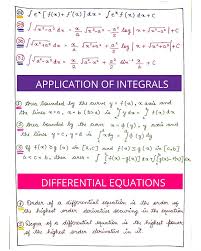 ∫ eˣ [f(x) + f'(x)] dx = ∫ eˣ f(x) dx + C
∫ √x²-a² dx = x/2 √x²-a² - a²/2 log |x + √x²-a²| + C
∫ √x²+a² dx = x/2 √x²+a² + a²/2 log |x + √x²+a²| + C
∫ √a²-x² dx = x/2 √a²-x² + a²/2 sin⁻¹ x/a + C
APPLICATION OF INTEGRALS
Area bounded by the curve y = f(x), x axis and
the lines x=a, x=b (b>a) is ∫ y dx = ∫ f(x) dx
Area bounded by the curve x = φ(y), y axis and
the lines y=c, y=d is ∫ x dy = ∫ φ(y) dy
If f(x) ≥ g(x) in [a,c] and f(x) ≤ g(x) in [c,b]
a<c<b, then area = ∫ [f(x)-g(x)] dx + ∫ [g(x)-f(x)] dx
DIFFERENTIAL EQUATIONS
Order of a differential equation is the order of
the highest order derivative occurring in the equation
Degree of a differential equation is the highest power
of the highest order derivative in it.